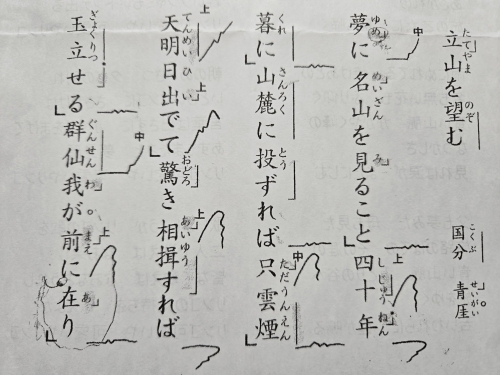 立山を望む
国分 青厓
夢に名山を見ること四十年
暮に山麓に投ずれば只雲煙
天明日出でて驚き相揖すれば
玉立せる群仙我が前に在り